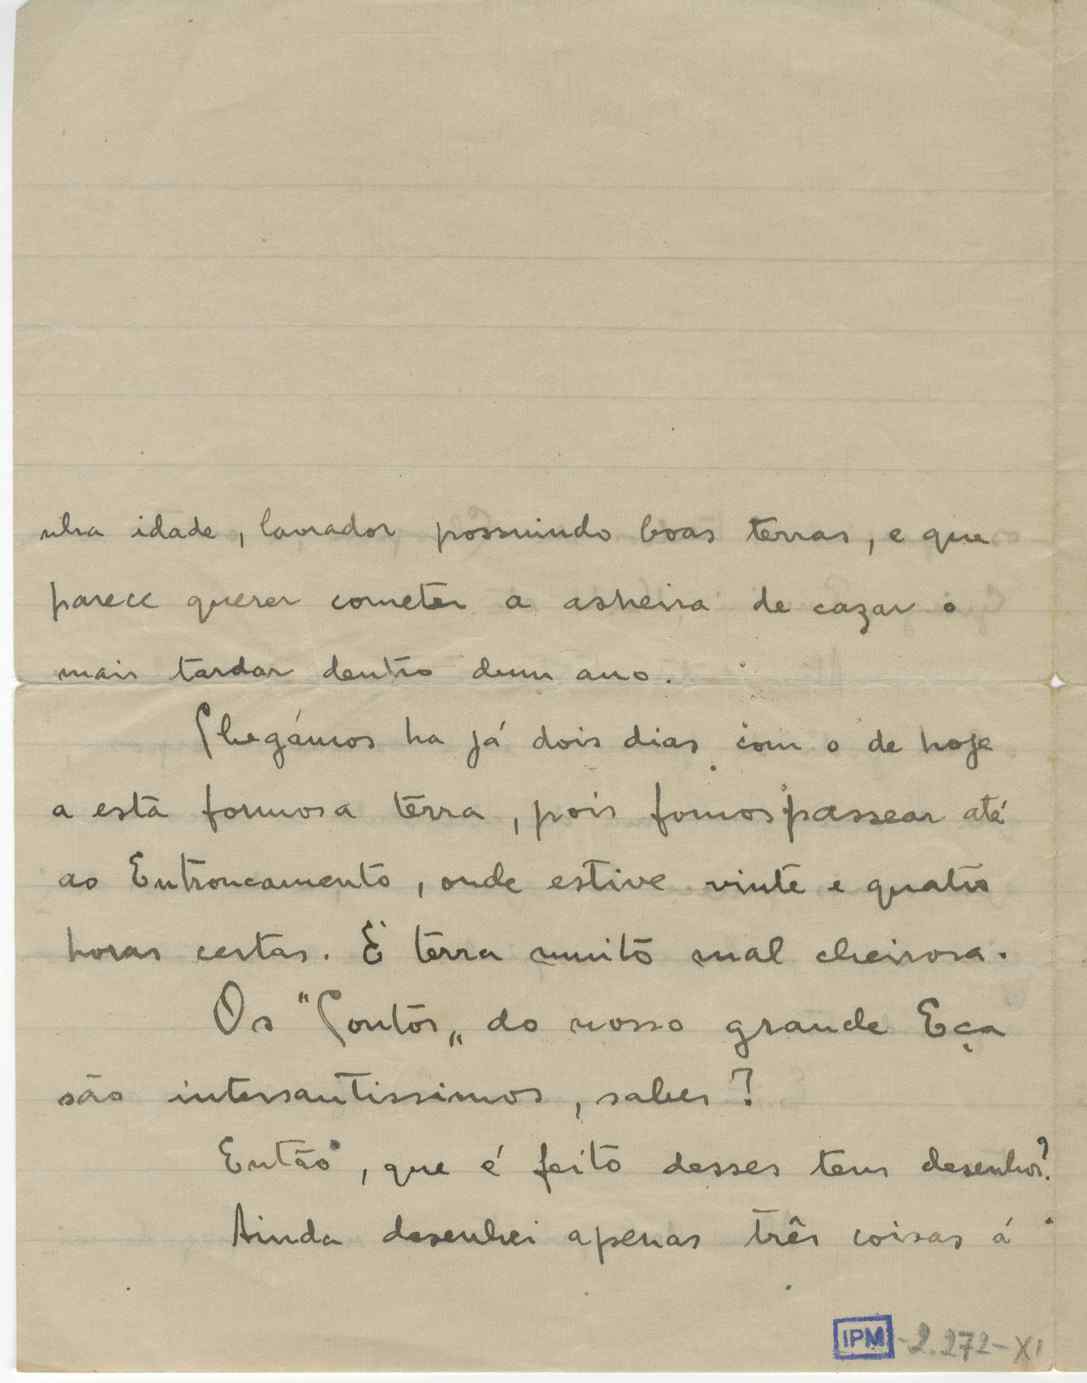 nha idade, lavrador possuindo boas terras, e que
parece querer cometer a asneira de cazar o
mais tardar dentro dum ano.
Chegámos ha já dois dias com o de hoje
a esta formosa terra, pois fomos passear até
ao Entroncamento, onde estive vinte e quatro
horas certas. É terra muito mal cheirosa.
Os "Contos„ do nosso grande Eça
são intersantissimos, sabes?
Então, que é feito desses teus desenhos?
Ainda desenhei apenas três coisas á
IPM - 2.272-XI